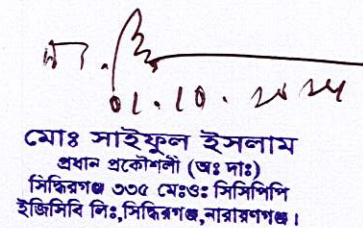 01.10.2024
মোঃ সাইফুল ইসলাম
প্রধান প্রকৌশলী (অঃ দাঃ)
সিদ্ধিরগঞ্জ ৩৩৫ মেঃওঃ সিসিপিপি
ইজিসিবি লিঃ,সিদ্ধিরগঞ্জ,নারায়ণগঞ্জ।